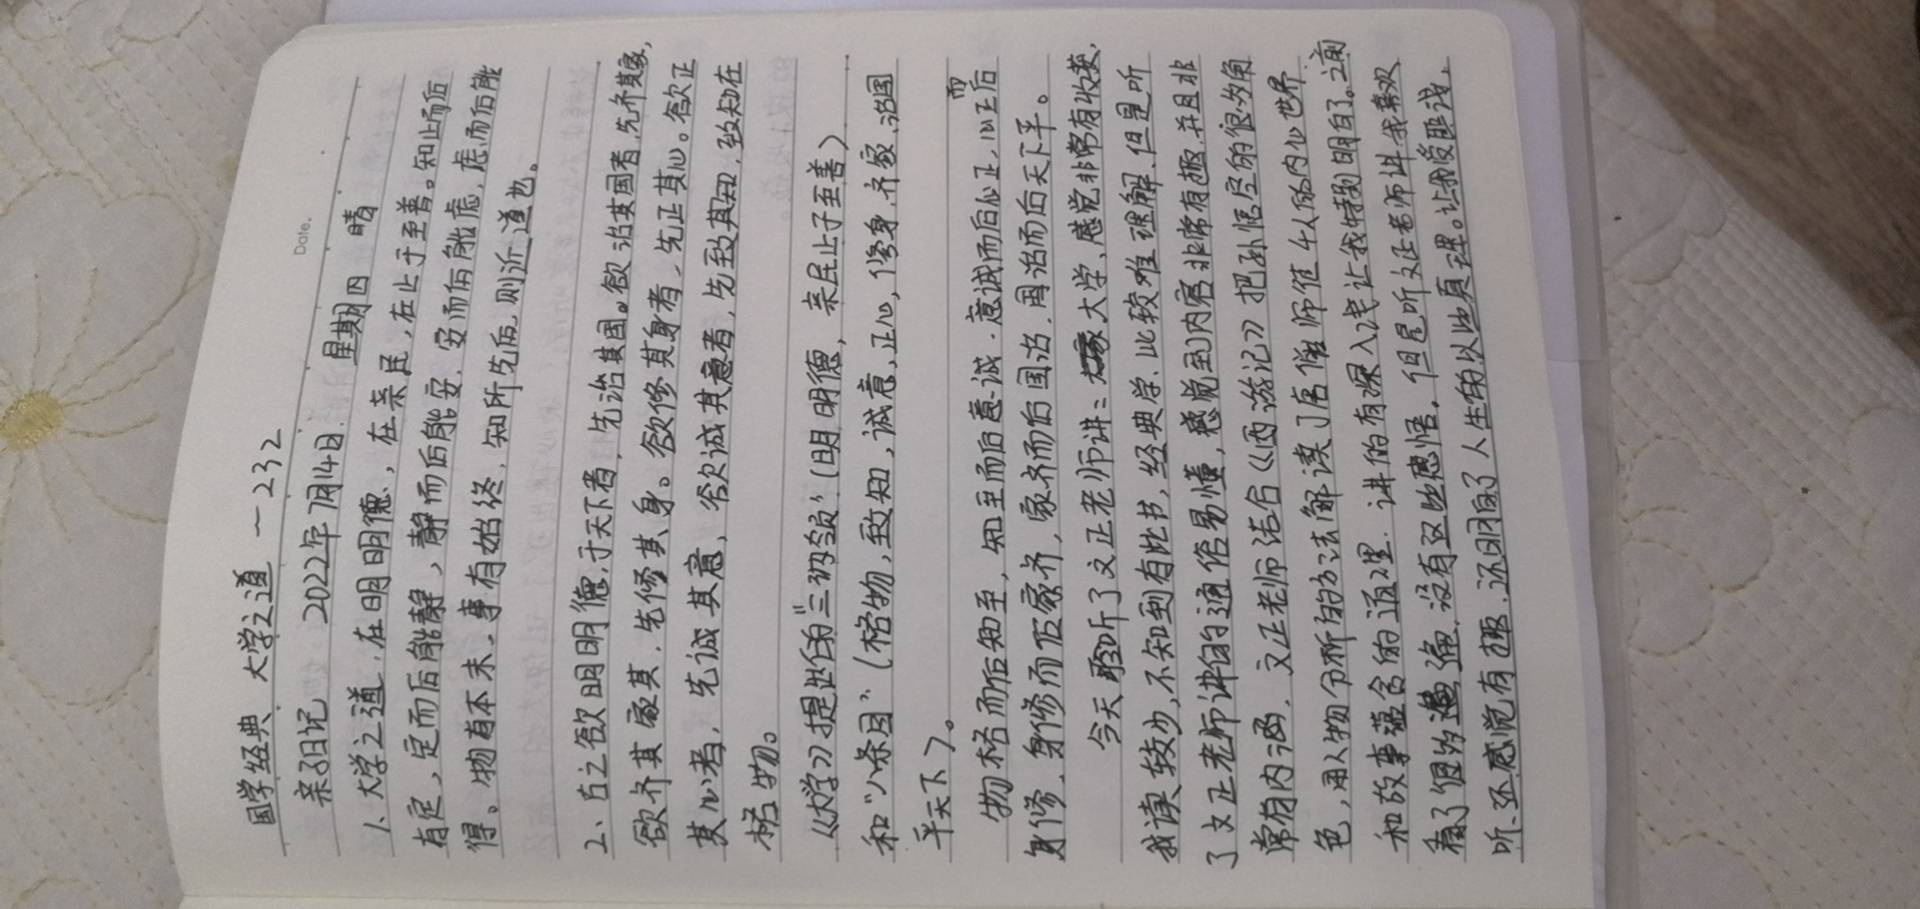 Date.
国学经典 大学之道 一232
亲子日记 2022年7月14日 星期四 晴
1、大学之道,在明明德,在亲民,在止于至善。知止而后
有定,定而后能静,静而后能安,安而后能虑,虑而后能
得。物有本末,事有始终,知所先后,则近道也。
2、古之欲明明德于天下者,先治其国。欲治其国者,先齐其家,
欲齐其家其,先修其身。欲修其身者,先正其心。欲正
其心者,先诚其意,欲诚其意者,先致其知,致知在
格物。
《大学》提出的"三纲领"(明明德,亲民止于至善)
和"八条目"(格物,致知,诚意,正心,修身,齐家,治国
平天下)。
物格而后知至,知至而后意诚,意诚而后心正,心正而后
身修,身修而后家齐,家齐而后国治,国治而后天下平。
今天聆听了文正老师讲:大学、感觉非常有收获,
我读较少,不知到有此书,经典学,比较难理解,但是听
了文正老师讲的通俗易懂,感觉到内容非常有趣,并且非
常有内涵,文正老师结合《西游记》把孙悟空的很为角
色,用人物分析的方法解读了唐僧师徒4人的内心世界
和故事蕴含的道理,讲的有深入浅让我特别明白了。之前
看了很多遍,没有这些感悟,但是听文正老师讲我喜欢
听、还感觉有趣,还明白了人生的以些真理。让我受匪浅,